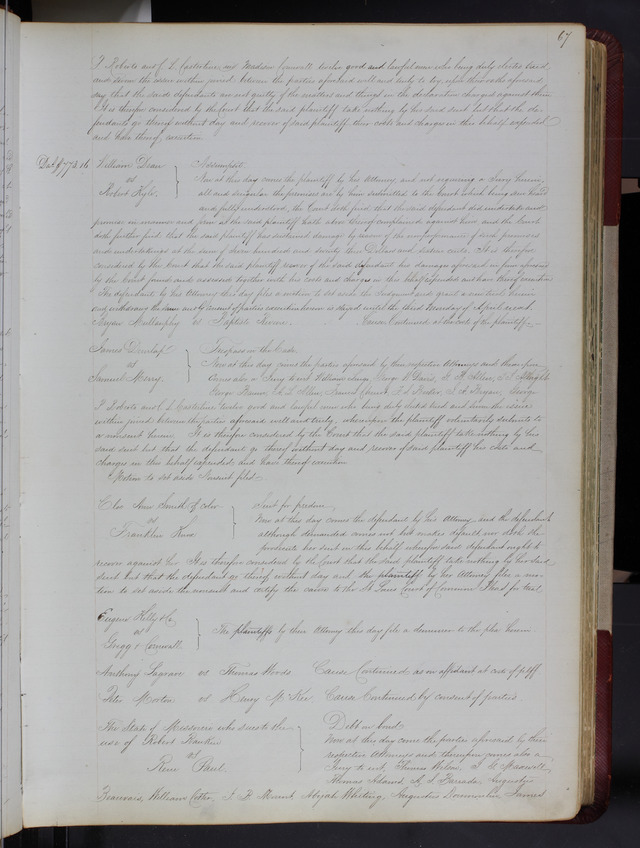 67
T Roberts and C L Carstarphen and Madison Cornwall twelve good and lawful men who being duly elected tried
and sworn the issue within joined between the parties aforesaid well and truly to try, upon their oaths aforesaid
say that the said defendants are not guilty of the matters and things in the declaration charged against them
It is therefore considered by the Court that the said plaintiff take nothing by his said suit but that the de-
fendants go thereof without day and recover of said plaintiff their costs and charges in this behalf expended
and have thereof execution
William Dean Assumpsit.
vs Now at this day comes the plaintiff by his Attorney, and not requiring a Jury herein,
Robert Kyle, all and singular the premises are by him submitted to the Court which being seen heard
and fully understood, the Court doth find that the said defendant did undertake and
promise in manner and form as the said plaintiff hath above thereof complained against him and the Court
doth further find that the said plaintiff has sustained damage by reason of the non performance of such promises
and undertakings at the sum of three hundred and seventy Dollars and sixteen cents. It is therefore
considered by the Court that the said plaintiff recover of the said defendant his damages aforesaid in form aforesaid
by the Court found and assessed together with his costs and charges in this behalf expended and have thereof execution
The defendant by his Attorney this day files a motion to set aside the Judgment and grant a new trial herein
and withdraws the same and by consent of parties execution herein is stayed until the third Monday of April next.
Bryan Mullanphy vs Baptiste Cause Continued at the costs of the plaintiff.
James Dunlap Trespass on the Case.
vs Now at this day comes the parties aforesaid by their respective Attorneys and thereupon
Samuel Merry. comes also a Jury to wit William George B Davis, Allen, Albright
George A. S. Allen, Daniel T. S. J. A. Bryan, George
T Roberts and C L Carstarphen twelve good and lawful men who being duly elected tried and sworn the issue
within joined between the parties aforesaid well and truly, whereupon the plaintiff voluntarily submits to
a nonsuit herein. It is therefore considered by the Court that the said plaintiff take nothing by his
said suit but that the defendant go thereof without day and recover of said plaintiff his costs and
charges in this behalf expended and have thereof execution
Motion to set aside Nonsuit filed.
Ann Smith of color Suit for freedom.
vs Now at this day comes the defendant by his Attorney and the plaintiff
Franklin although demanded comes not but makes default nor doth she
prosecute her suit in this behalf wherefore said defendant ought to
recover against her. It is therefore considered by the Court that the said plaintiff take nothing by her said
suit but that the defendant go thereof without day and the plaintiff by her Attorney files a mo-
tion to set aside the nonsuit and certify the cause to the St Louis Court of Common Pleas for trial
Eugene Kelly & Co.
vs The plaintiffs by their Attorney this day file a demurrer to the plea herein.
Gregg & Cornwall.
Anthony Lagrave vs Thomas Woods Cause Continued as on affidavit at cost of pltff
Peter Morton vs Henry McKee, Cause Continued by consent of parties
The State of Missouri who sues to the Debt on bond
use of Robert Rankin Now at this day come the parties aforesaid by their
vs respective Attorneys and thereupon comes also a
Rene Paul. Jury to wit, Thomas Wilson, Maxwell
Thomas Adams, Augustus
William Cotter, J. B. Abijah Whiting, Augustus James